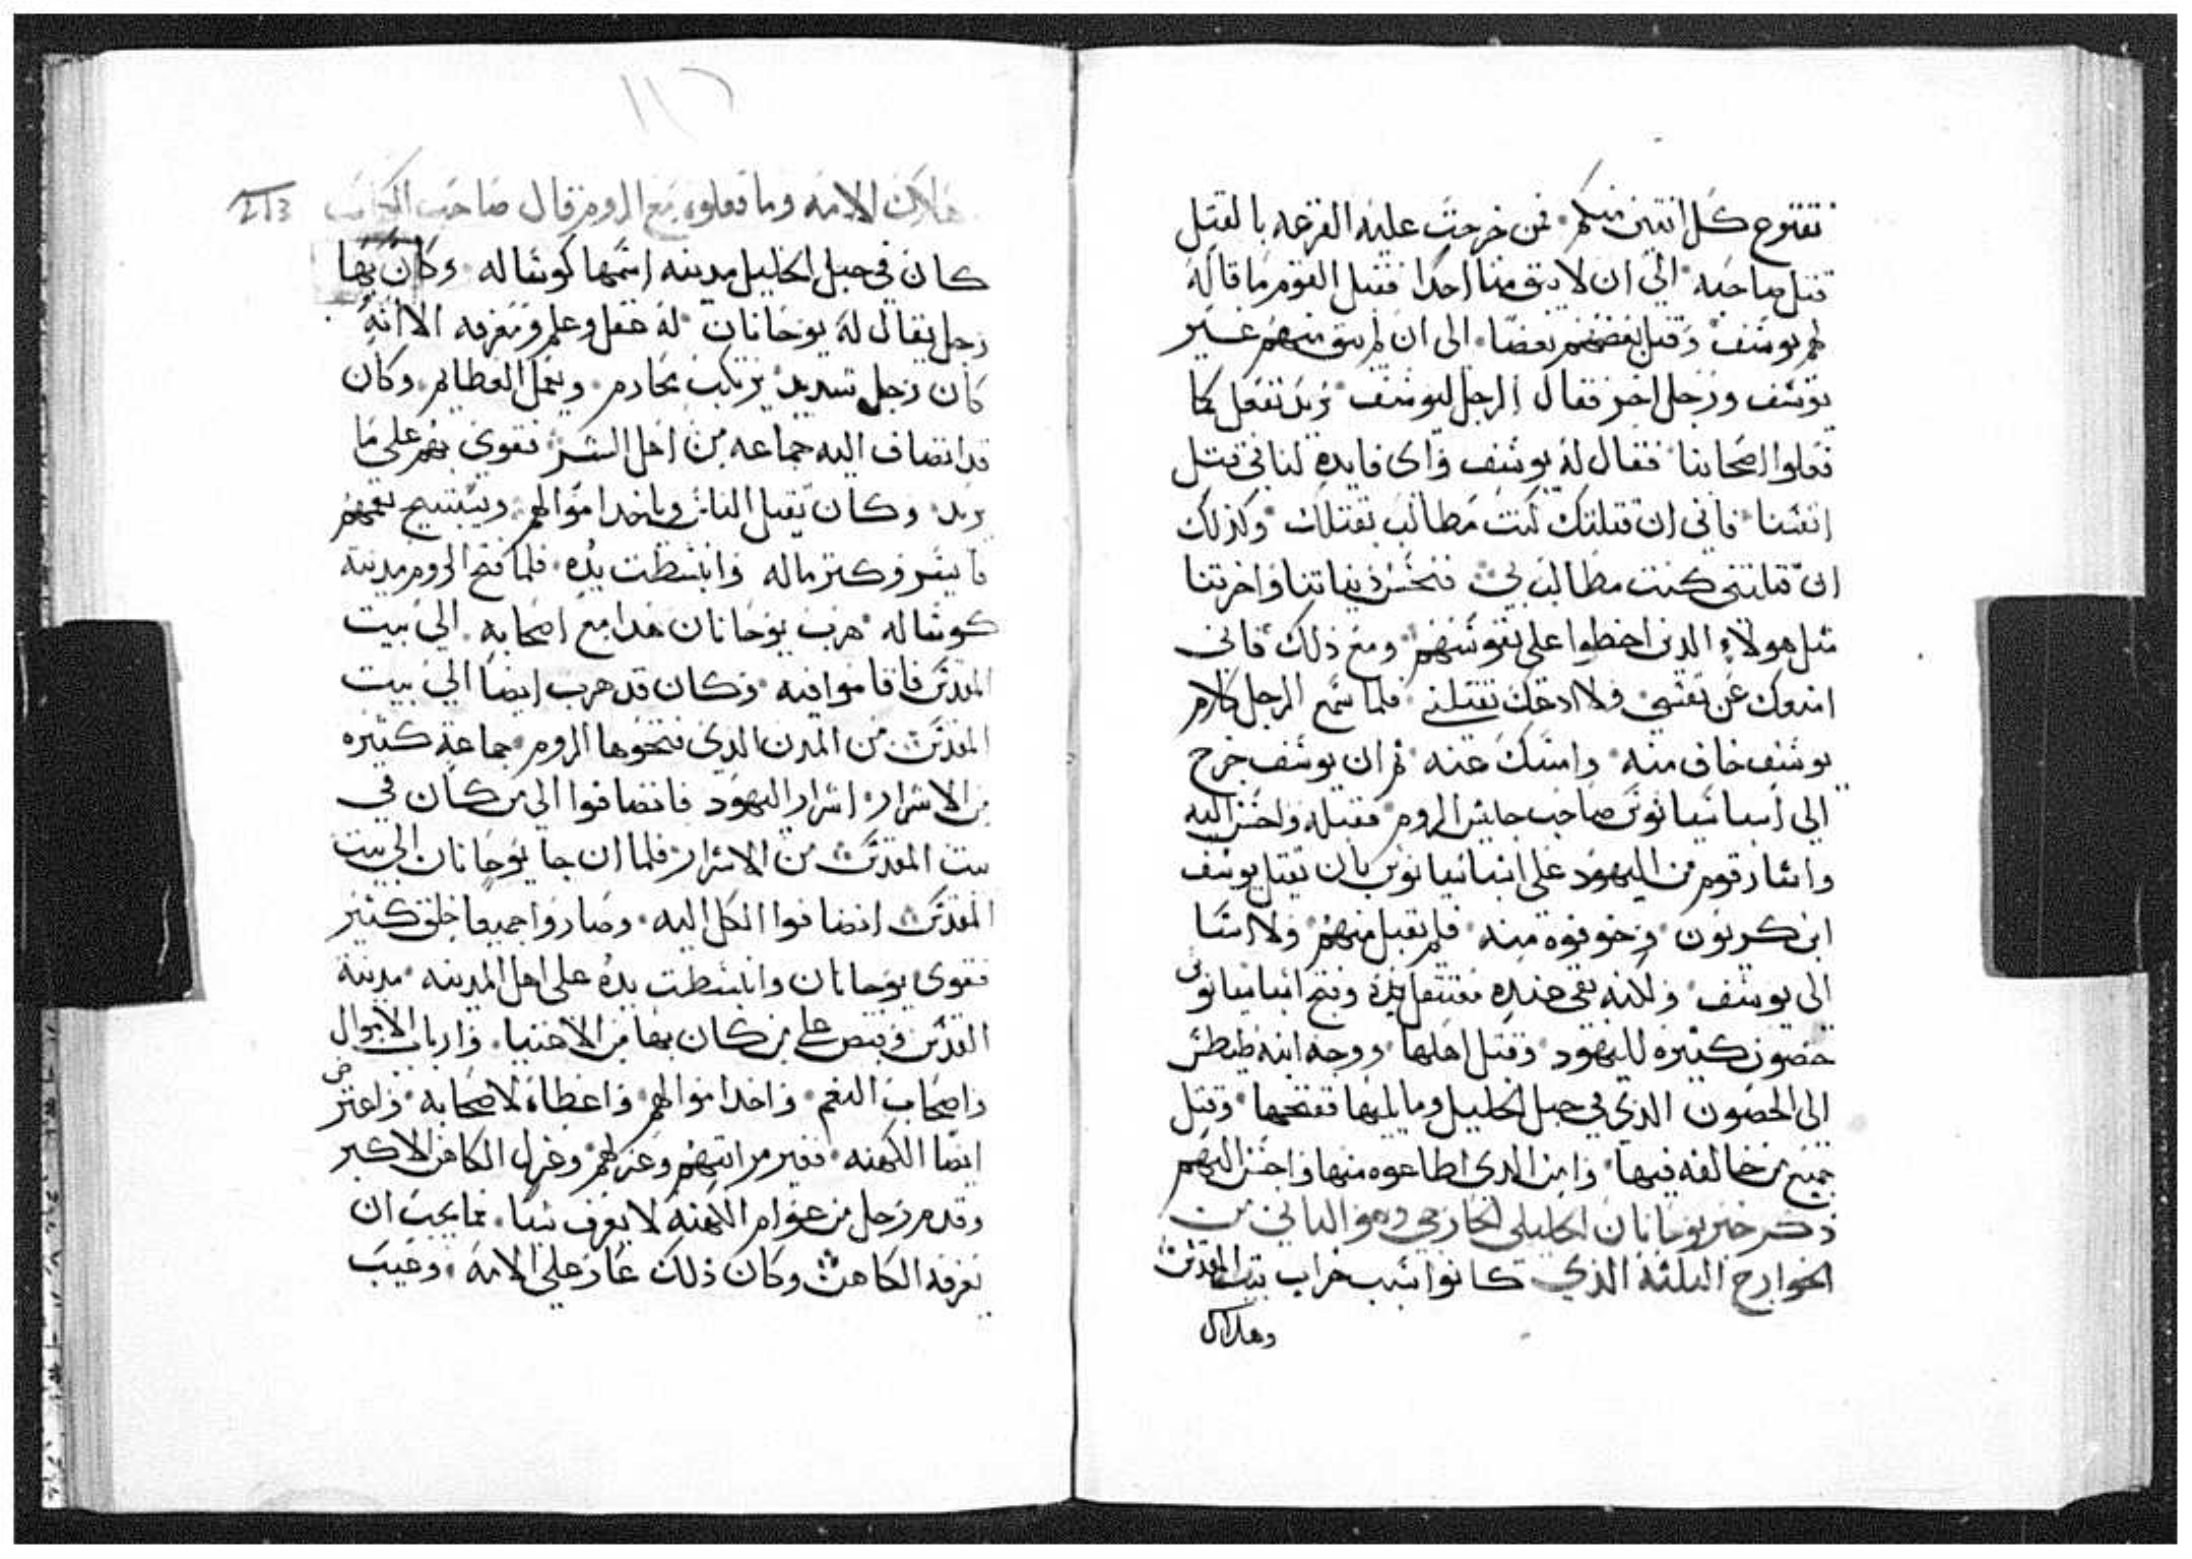 تقترع كل اثنين منكم فمن خرجت عليه القرعه بالقتل
قتل صاحبه الى ان لا يبق منا احدا فقبل القوم ما قاله
لهم يوسف وقتل بعضهم بعضا الى ان لم يبق منهم غير
يوسف ورجل اخر فقال الرجل ليوسف نريد نفعل كما
فعلوا اصحابنا فقال له يوسف واى فايده لنا فى قتل
انفسنا فانى ان قتلتك كنت مطالب بقتلك وكذلك
ان قتلتنى كنت مطالب بى فنخسر دنياتنا واخرتنا
مثل هولاء الدين اخطوا على نفوسهم ومع ذلك فانى
امنعك عن نفسى ولا ادعك تقتلنى فلما سمع الرجل كلام
يوسف خاف منه وامسك عنه ثم ان يوسف خرج
الى اسباسيانوس صاحب جايش الروم فقبله واحسن اليه
واشار قوم من اليهود على اسباسيانوس بان يقتل يوسف
ابن كريون وخوفوه منه فلم يقبل منهم ولا اسا
الى يوسف ولكنه بقى عنده معتقل وفتح اسباسيانوس
حصون كثيره لليهود وقتل اهلها ووجه ابنه طيطس
الى الحصون الذي في جبل الخليل وما يليها ففتحها وقتل
جميع من خالفه فيها وامن الدى اطاعوه منها واحسن اليهم
ذكر خبر يوحانان الجليلى الخارجى وهو التانى من
الخوارج التلثه الذي كانوا سبب خراب بيت المقدس
وهلاك
١١٢
هلاك الامه وما فعلوه مع الروم قال صاحب الكتاب
213
كان في جبل الخليل مدينه اسمها كوشاله وكان بها
رجل يقال له يوحانان له عقل وعلم ومعرفه الا انه
كان رجل شديد يرتكب محارم ويعمل العظايم وكان
قد انضاف اليه جماعه من اهل الشر فقوى بهم على ما
يريد وكان يقتل الناس وياخد اموالهم ويستبيح
وكثر ماله وانبسطت يده فلما فتح الروم مدينة
كوشاله هرب يوحانان هدا مع اصحابه الى بيت
المقدس فاقاموا فيه وكان قد هرب ايضا الى بيت
المقدس من المدن الدى فتحوها الروم جماعة كثيره
من الاشرار اشرار اليهود فانضافوا الى من كان في
بيت المقدس من الاشرار فلما ان جا يوحانان الى بيت
المقدس انضافوا الكل اليه وصاروا جميعا خلق كثير
فقوى يوحانان وانبسطت يده على اهل المدينه مدينة
القدس وقبض على من كان بها من الاغنيا وارباب الاموال
واصحاب النعم واخد اموالهم واعطاه لاصحابه واعترض
ايضا الكهنه فغير مراتبهم وعزلهم وعزل الكاهن الاكبر
وقدم رجل من عوام الكهنه لا يعرف شيا مما يجب ان
يعرفه الكاهن وكان ذلك عار على الامه وعيب